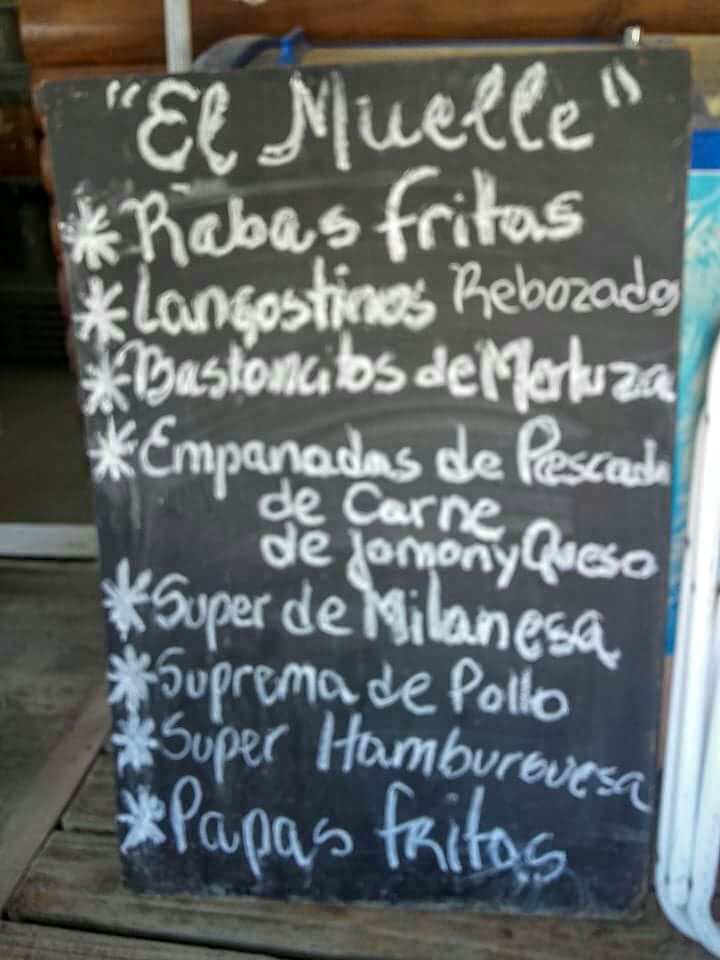 "El Muelle"
* Rabas fritas
* Langostinos Rebozados
* Bastoncitos de Merluza
* Empanadas de Pescado
de Carne
de Jamon y Queso
* Super de Milanesa
* Suprema de Pollo
* Super Hamburguesa
* Papas fritas